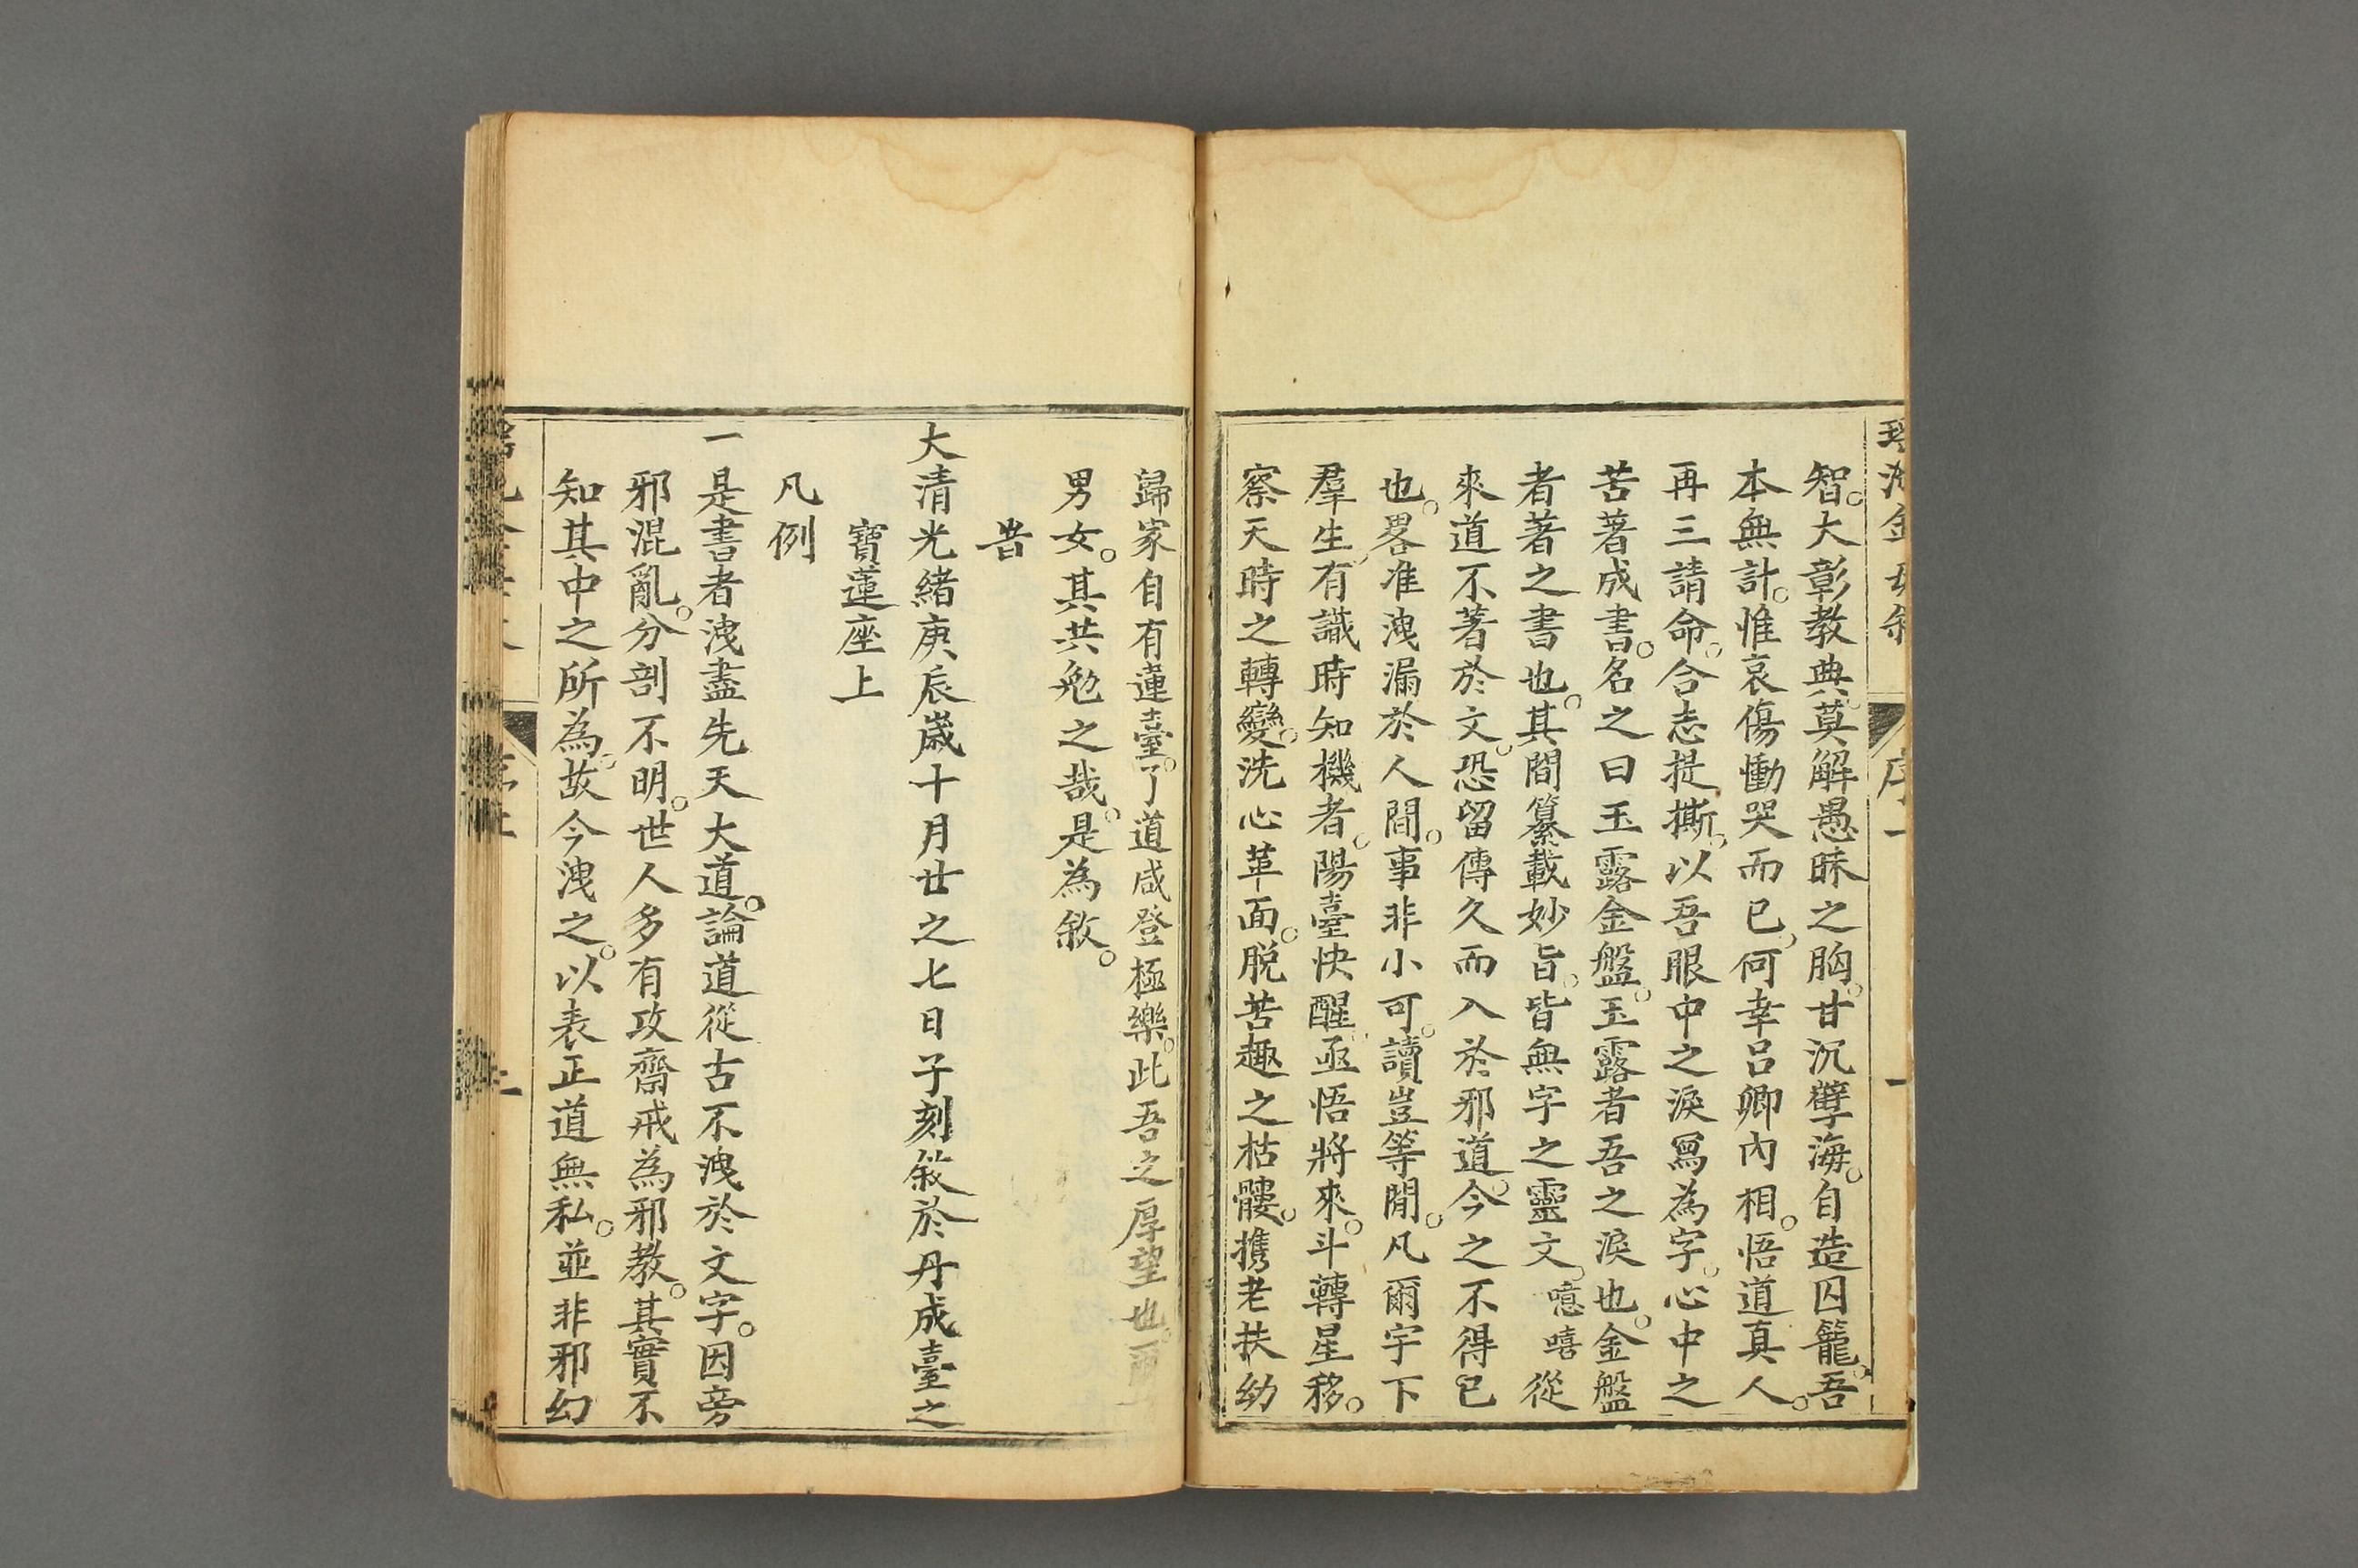 智。大彰教典。莫解愚昧之胸。甘沉孽海。自造囚籠。吾
本無計。惟哀傷慟哭而已。何幸呂卿內相。悟道真人。
再三請命。合志提撕。以吾眼中之淚寫為字。心中之
苦著成書。名之曰玉露金盤。玉露者吾之淚也。金盤
者著之書也。其間纂載妙旨。皆無字之靈文。噫嘻從
來道不著於文。恐留傳久而入於邪道。今之不得已
也。畧准洩漏於人間。事非小可。讀豈等閒。凡爾宇下
羣生。有識時知機者。陽臺快醒。亟悟將來。斗轉星移。
察天時之轉變。洗心革面。脫苦趣之枯髏。携老扶幼
歸家自有蓮臺。了道咸登極樂。此吾之厚望也。爾
男女。其共勉之哉。是為敘。
旹
大清光緒庚辰歲十月廿之七日子刻敘於丹成臺之
寶蓮座上
凡例
一是書者洩盡先天大道。論道從古不洩於文字。因旁
邪混亂。分剖不明。世人多有攻齋戒為邪教。其實不
知其中之所為。故今洩之。以表正道無私。並非邪幻